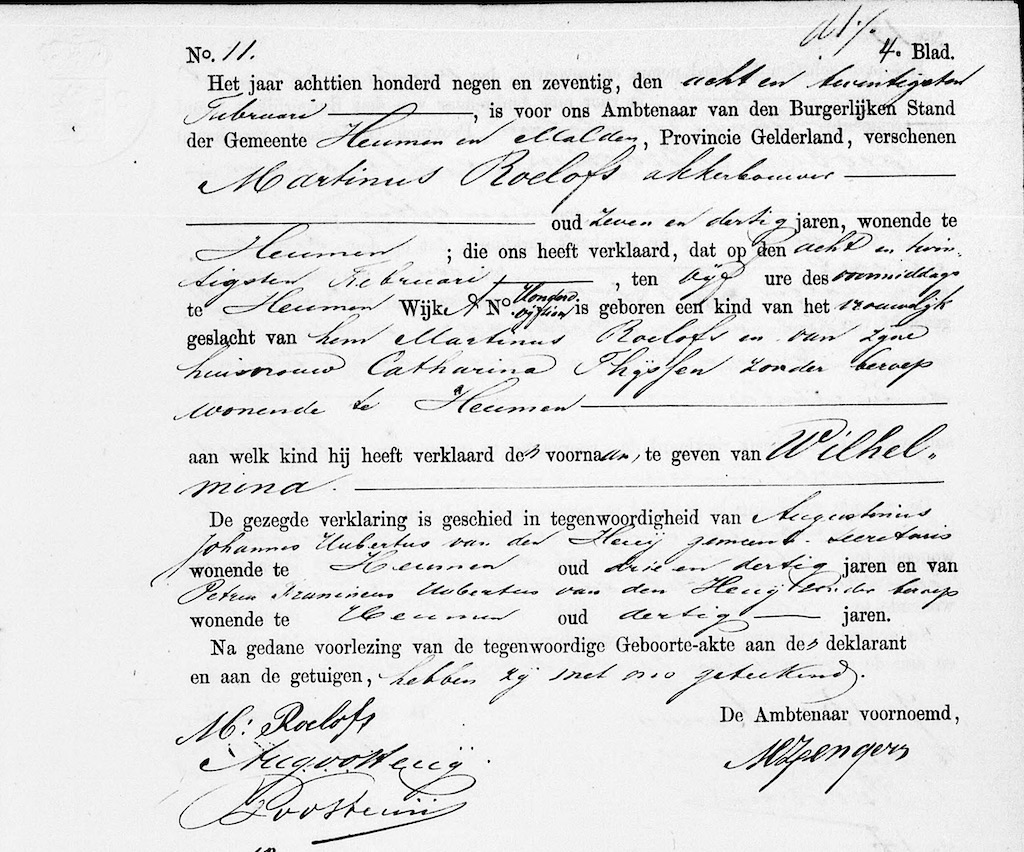 No. 11. 4. Blad.
Het jaar achttien honderd negen en zeventig, den acht en twintigsten
Februari, is voor ons Ambtenaar van den Burgerlijken Stand
der Gemeente Heumen en Malden, Provincie Gelderland, verschenen
Martinus Roelofs akkerbouwer
oud zeven en dertig jaren, wonende te
Heumen ; die ons heeft verklaard, dat op den acht en twin-
tigsten Februari, ten vijf ure des voormiddags
te Heumen Wijk A No. Honderd
vijftien is geboren een kind van het vrouwelijk
geslacht van hem Martinus Roelofs en van zijne
huisvrouw Catharina Thijssen zonder beroep
wonende te Heumen
aan welk kind hij heeft verklaard den voornaam, te geven van Wilhel-
mina.
De gezegde verklaring is geschied in tegenwoordigheid van Augustinus
Johannes Hubertus van den Heuij gemeente secretaris
wonende te Heumen oud drie en dertig jaren en van
Petrus Franciscus Hubertus van den Heuij zonder beroep
wonende te Heumen oud dertig jaren.
Na gedane voorlezing van de tegenwoordige Geboorte-akte aan den deklarant
en aan de getuigen, hebben zij met ons geteekend.
M: Roelofs
De Ambtenaar voornoemd,